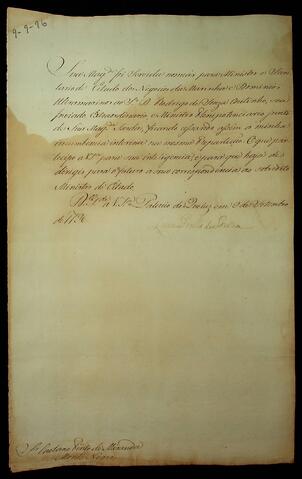 9-9-96
Sua Mag.e foi servida nomear para Ministro e Secre
tario de Estado dos Negocios da Marinha e Dominios
Ultramarinos ao S.r D. Rodrigo de Souza Coutinho, en
viado Extraordinario e Ministro Plenipotenciario junto
de Sua Mag.e Sarda, ficando assim a minha
incumbencia interina na mesma Repartição. O que par
ticipo a V.S.a para sua intelligencia, e para que haja de
dirigir para o futuro a sua correspondencia ao sobredito
Ministro de Estado.
D.s g.de a V.S.a Palacio de Queluz em 9 de Setembro
de 1796
S.r Caetano Pinto de Miranda
Monte Negro